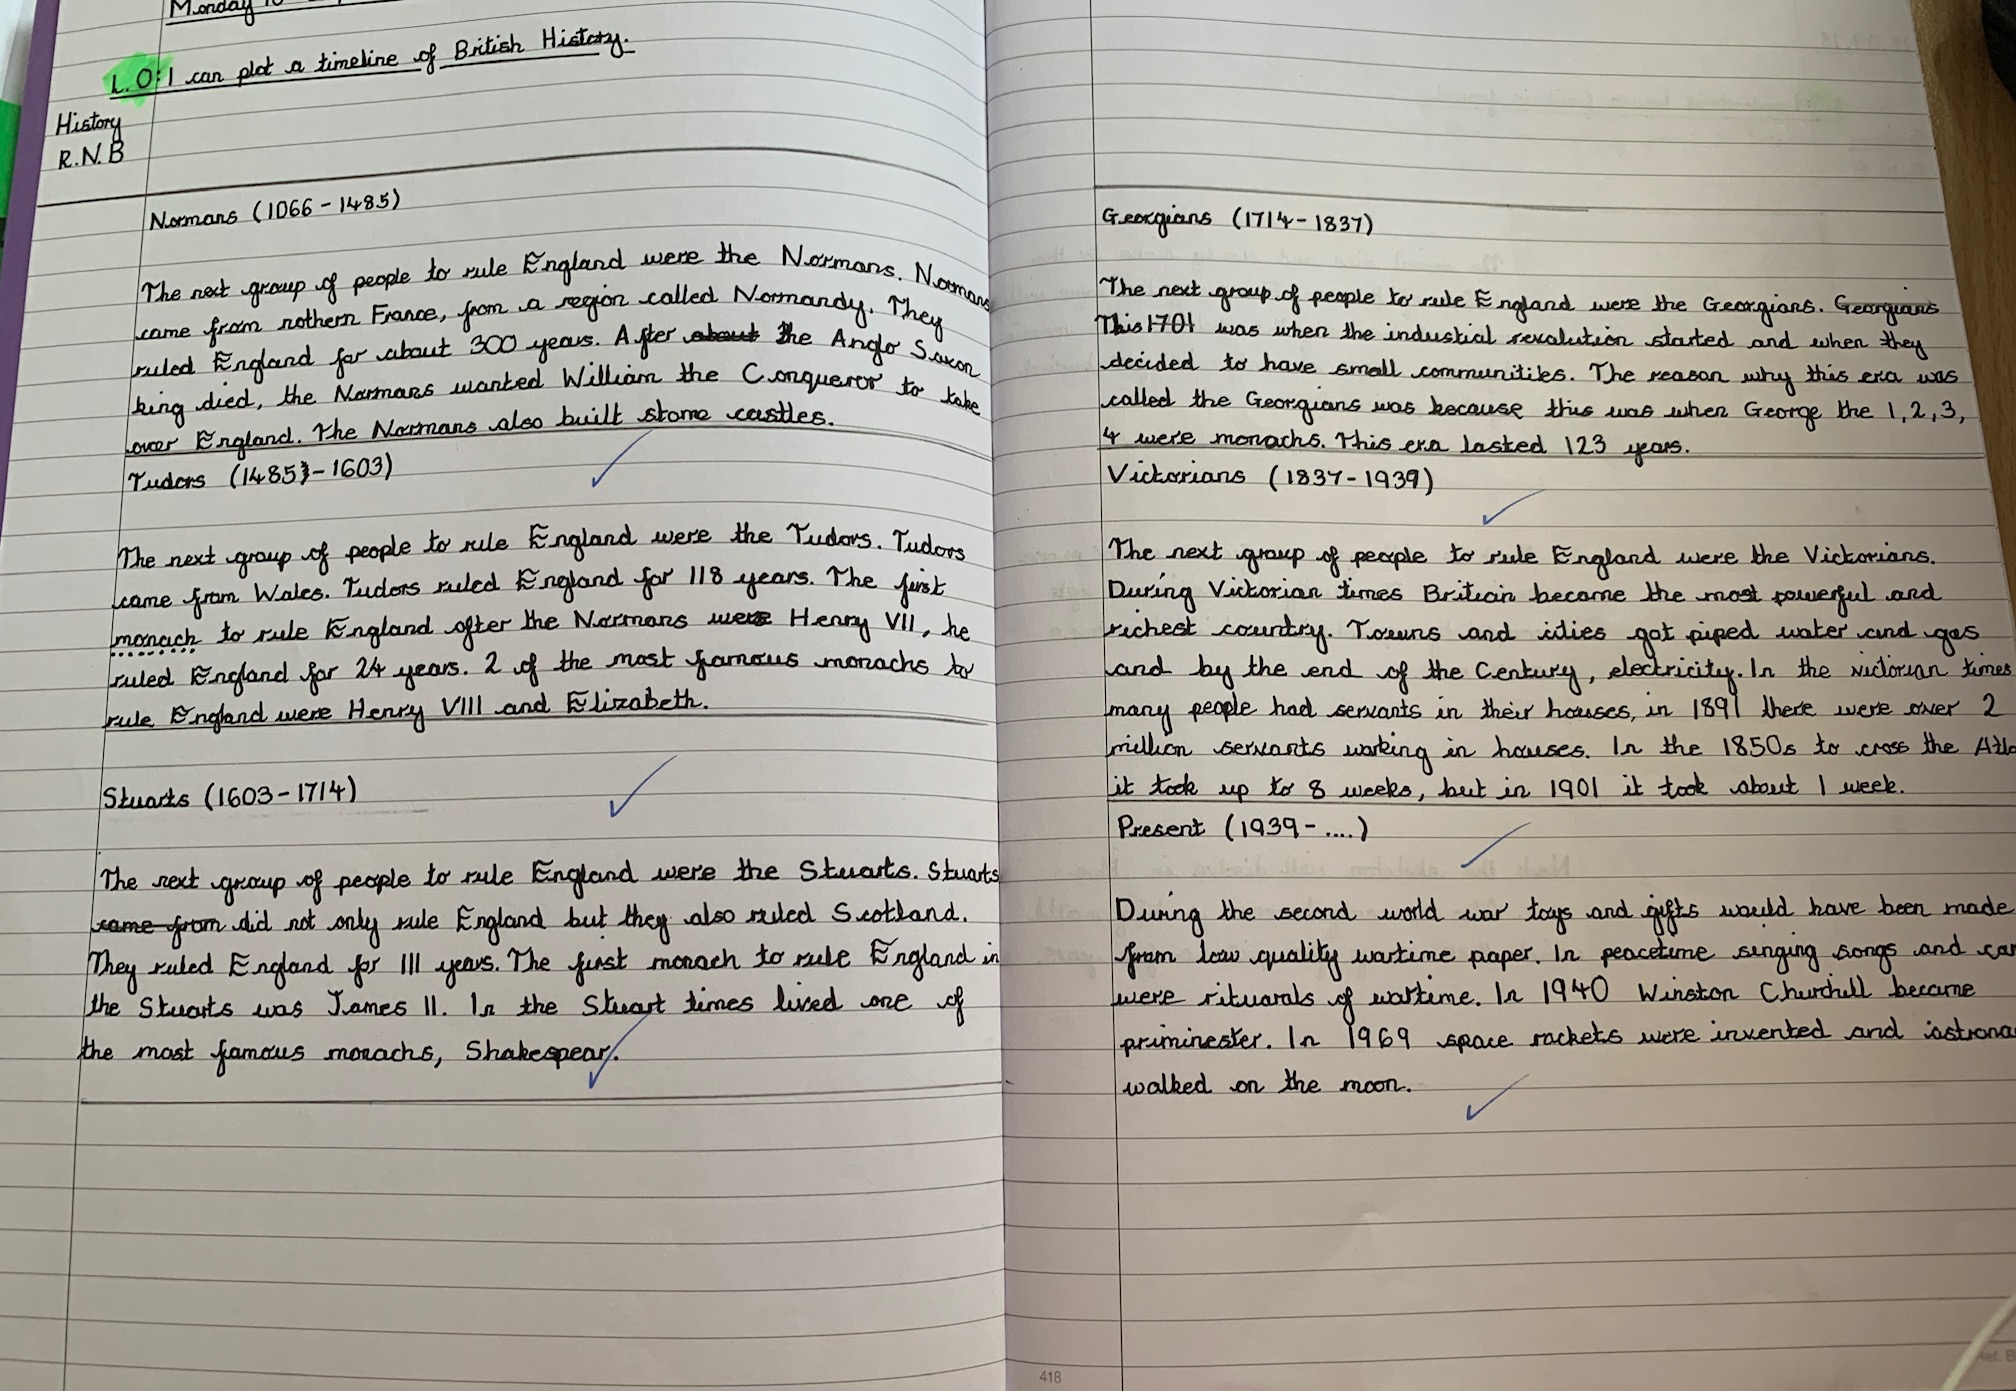 Monday
L.O: I can plot a timeline of British History.
History
R.N.B
Normans (1066 - 1485)
The next group of people to rule England were the Normans. Normans
came from nothern France, from a region called Normandy. They
ruled England for about 300 years. After about the Anglo Saxon
king died, the Normans wanted William the Conqueror to take
over England. The Normans also built stone castles.
Tudors (1485 - 1603)
The next group of people to rule England were the Tudors. Tudors
came from Wales. Tudors ruled England for 118 years. The first
monach to rule England after the Normans were Henry VII, he
ruled England for 24 years. 2 of the most famous monachs to
rule England were Henry VIII and Elizabeth.
Stuarts (1603 - 1714)
The next group of people to rule England were the Stuarts. Stuarts
came from did not only rule England but they also ruled Scotland.
They ruled England for 111 years. The first monach to rule England in
the Stuarts was James II. In the Stuart times lived one of
the most famous monachs, Shakespear.
Georgians (1714 - 1837)
The next group of people to rule England were the Georgians. Georgians
This 1701 was when the industial revalution started and when they
decided to have small communities. The reason why this era was
called the Georgians was because this was when George the 1, 2, 3,
4 were monachs. This era lasted 123 years.
Victorians (1837 - 1939)
The next group of people to rule England were the Victorians.
During Victorian times Britian became the most powerful and
richest country. Towns and cities got piped water and gas
and by the end of the Century, electricity. In the victorian times
many people had servants in their houses, in 1891 there were over 2
million servants working in houses. In the 1850s to cross the Atla
it took up to 8 weeks, but in 1901 it took about 1 week.
Present (1939 - ....)
During the second world war toys and gifts would have been made
from low quality wartime paper. In peacetime singing songs and car
were rituarals of wartime. In 1940 Winston Churchill became
priminester. In 1969 space rockets were invented and astrona
walked on the moon.
418